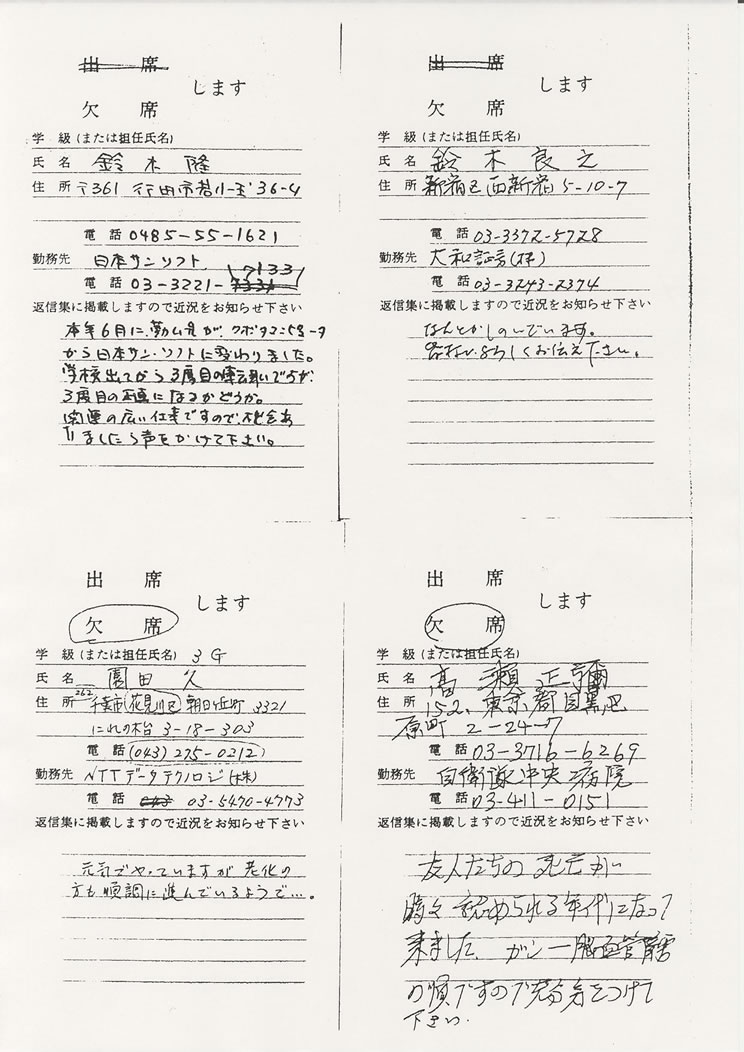 出席
します
欠席
学級(または担任氏名)
氏名 鈴木隆
住所 〒361 行田市若小玉36-4
電話 0485-55-1621
勤務先 日本サンソフト
7133
電話 03-3221-
返信集に掲載しますので近況をお知らせ下さい
本年6月に、勤ム先が、クボタコンピュータ
から日本サン・ソフトに変わりました。
学校出てから3度目の転職ですが、
3度目の正直になるかどうか。
関連の広い仕事ですので、機会あ
りましたら声をかけて下さい。
出席
します
欠席
学級(または担任氏名)
氏名 鈴木良之
住所 新宿区西新宿5-10-7
電話 03-3372-5728
勤務先 大和証券(株)
電話 03-3243-2374
返信集に掲載しますので近況をお知らせ下さい
なんとかしのいでいます。
よろしくお伝え下さい。
出席
します
欠席
学級(または担任氏名) 3G
氏名 園田久
住所 262 千葉市花見川区朝日ヶ丘町3321
にれの木台 3-18-303
電話 (043)275-0212
勤務先 NTTデータテクノロジ(株)
電話 03-5470-4773
返信集に掲載しますので近況をお知らせ下さい
元気でやっていますが老化の
方も順調に進んでいるようで…。
出席
します
欠席
学級(または担任氏名)
氏名 高瀬正彌
住所 152 東京都目黒区
原町 2-24-7
電話 03-3716-6269
勤務先 自衛隊中央病院
電話 03-411-0151
返信集に掲載しますので近況をお知らせ下さい
友人たちの死亡が
時々認められる年代になって
来ました、ガン―脳血管障害
の順ですので充分気をつけて
下さい.